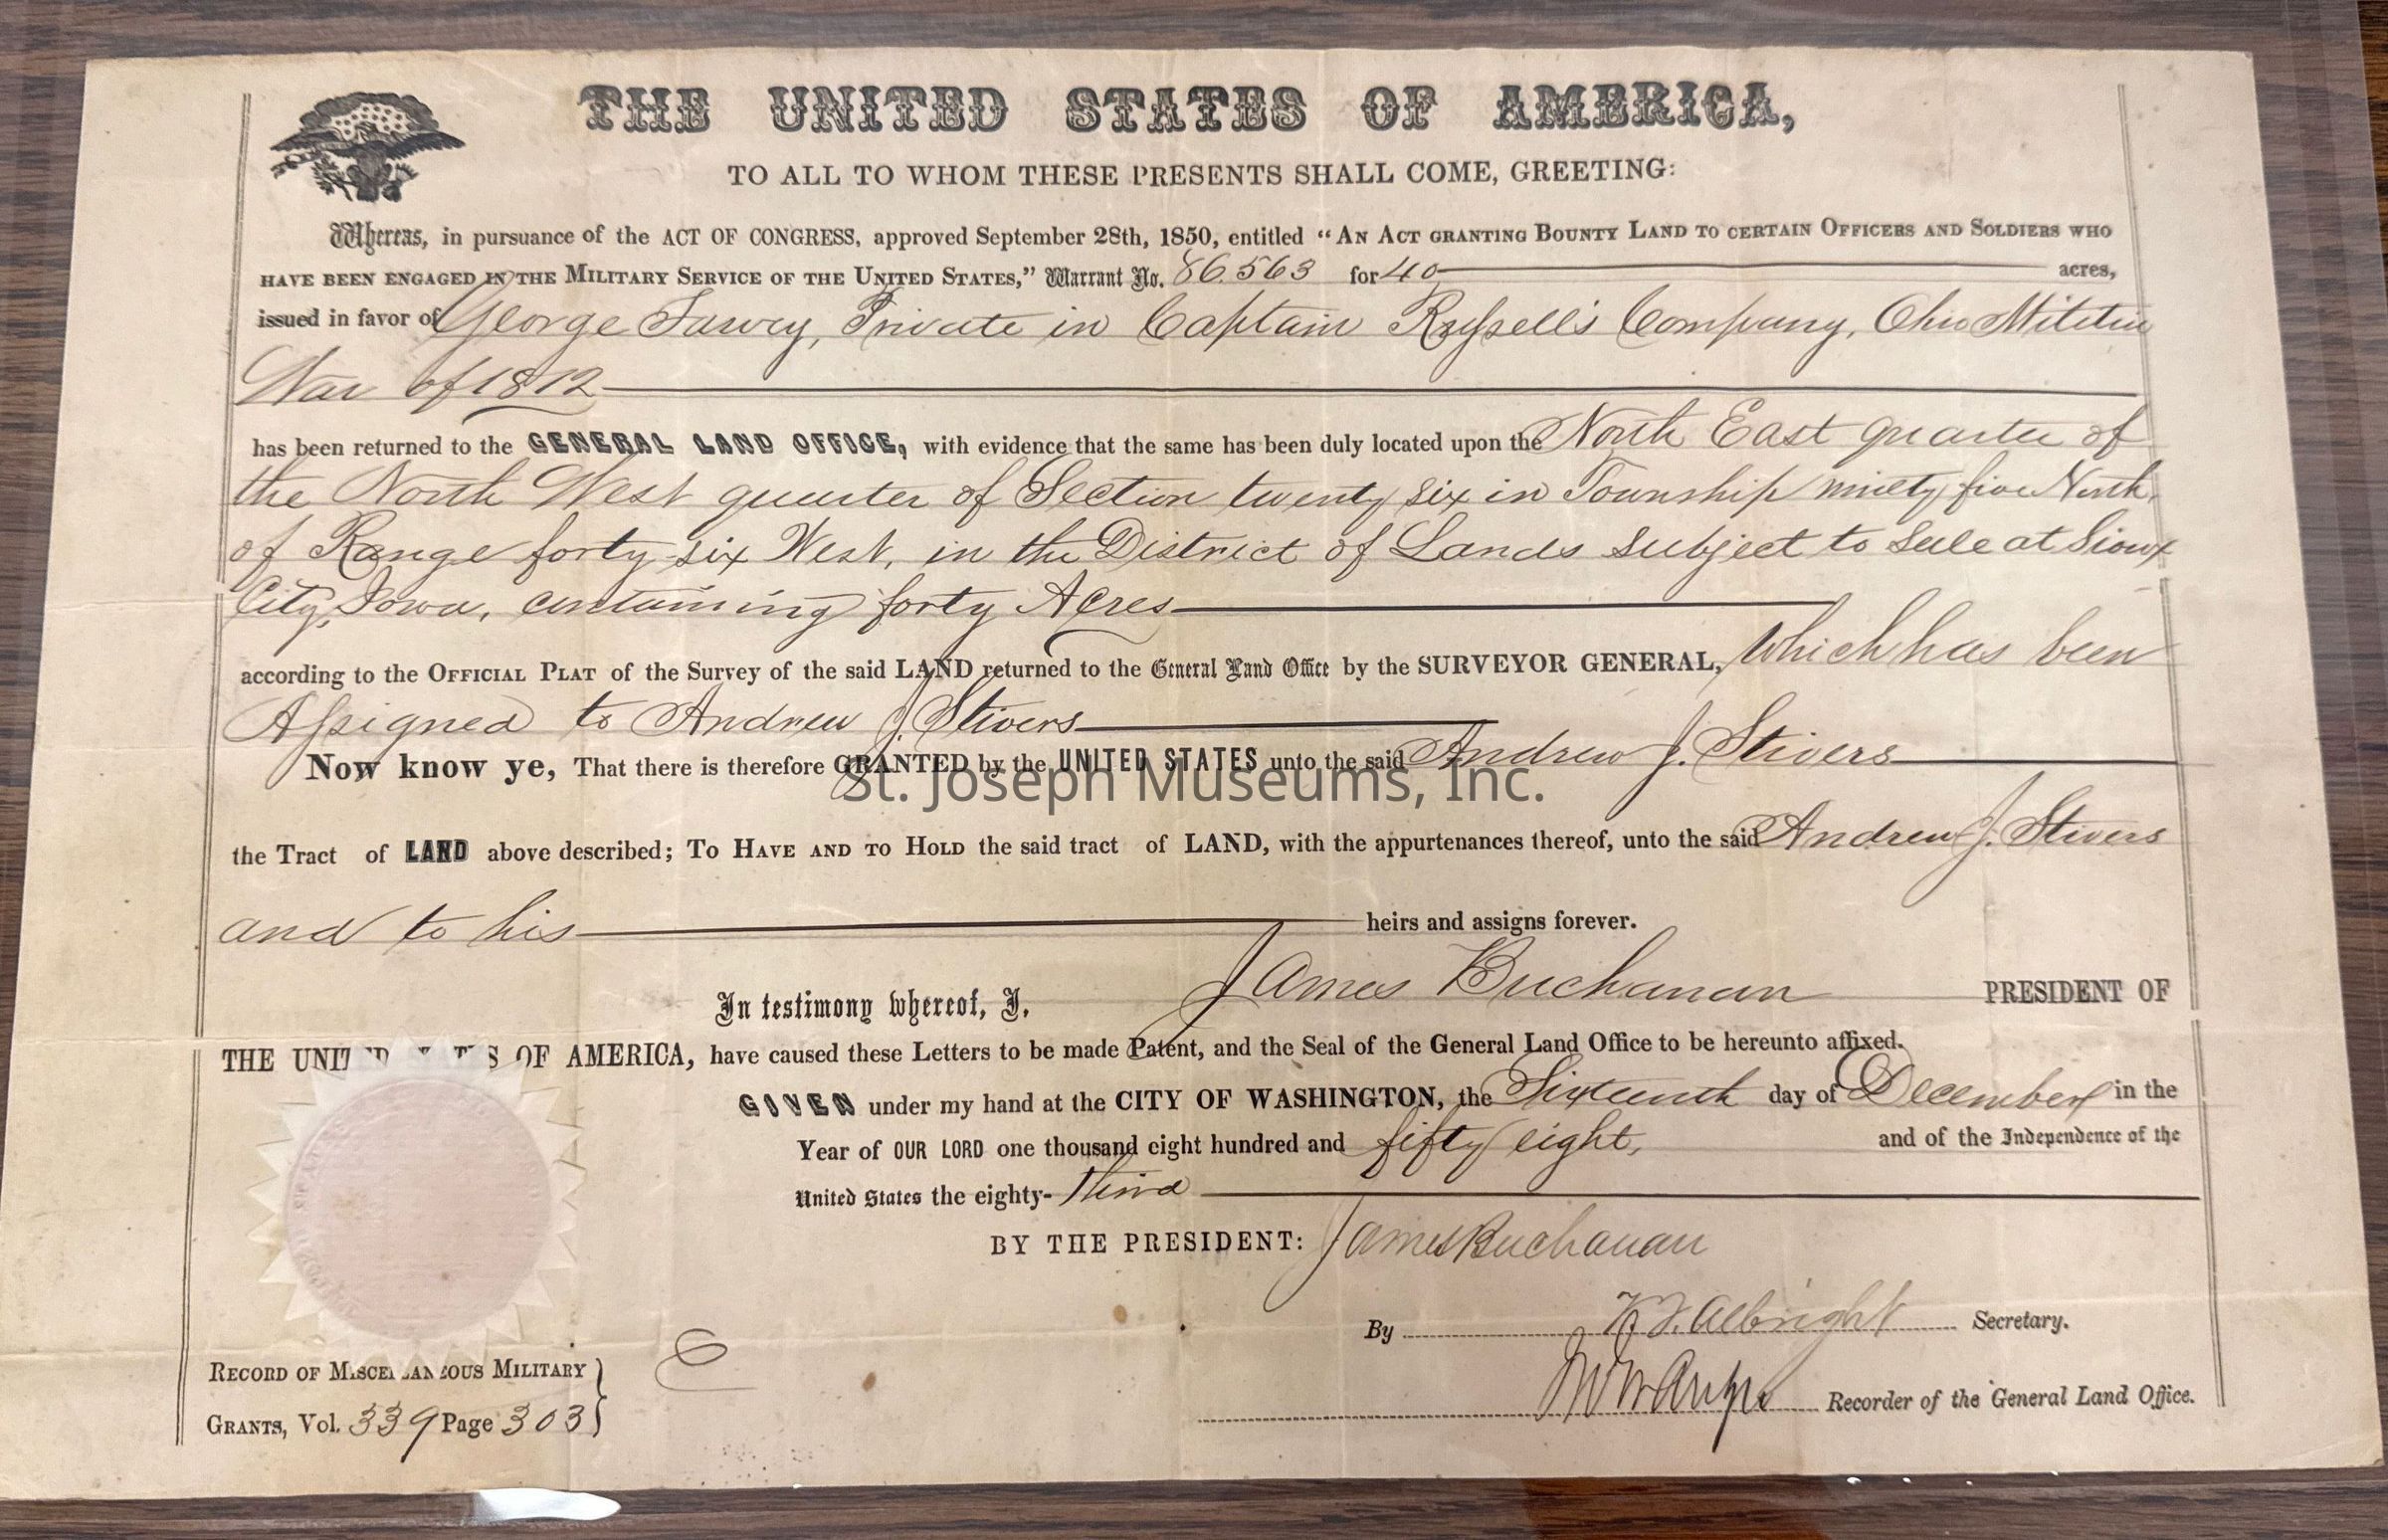 THE UNITED STATES OF AMERICA,
TO ALL TO WHOM THESE PRESENTS SHALL COME, GREETING:
Whereas, in pursuance of the ACT OF CONGRESS, approved September 28th, 1850, entitled "AN ACT GRANTING BOUNTY LAND TO CERTAIN OFFICERS AND SOLDIERS WHO
HAVE BEEN ENGAGED IN THE MILITARY SERVICE OF THE UNITED STATES," Warrant No. 86.563 for 40 acres,
issued in favor of George , Private in Captain Russell's Company, Ohio Militia
War of 1812
has been returned to the GENERAL LAND OFFICE, with evidence that the same has been duly located upon the North East quarter of
the North West quarter of Section twenty six in Township ninety five North,
of Range forty six West, in the District of Lands subject to Sale at Sioux
City, Iowa, containing forty Acres
according to the OFFICIAL PLAT of the Survey of the said LAND returned to the General Land Office by the SURVEYOR GENERAL, Which has been
Assigned to Andrew J. Stivers
Now know ye, That there is therefore GRANTED by the UNITED STATES unto the said Andrew J. Stivers
St. Joseph Museums, Inc.
the Tract of LAND above described; TO HAVE AND TO HOLD the said tract of LAND, with the appurtenances thereof, unto the said Andrew J. Stivers
and to his heirs and assigns forever.
In testimony whereof, I, James Buchanan PRESIDENT OF
THE UNITED STATES OF AMERICA, have caused these Letters to be made Patent, and the Seal of the General Land Office to be hereunto affixed.
GIVEN under my hand at the CITY OF WASHINGTON, the Sixteenth day of December in the
Year of OUR LORD one thousand eight hundred and fifty eight, and of the Independence of the
United States the eighty-third
BY THE PRESIDENT: James Buchanan
By Albright Secretary.
Recorder of the General Land Office.
RECORD OF MISCELLANEOUS MILITARY
GRANTS, Vol. 339 Page 303